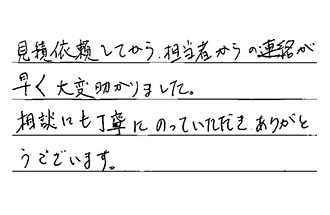 見積依頼してから、担当者からの連絡が
早く大変助かりました。
相談にも丁寧にのっていただきありがと
うございます。